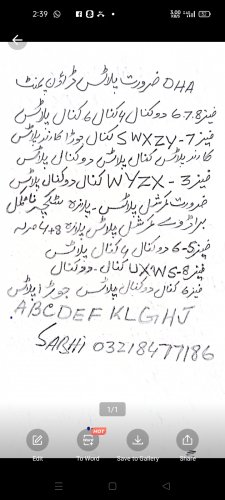 2:39
3.00 KB/S
DHA ضرورت پلاٹس
فیز 6.7.8 دو کنال 4 کنال 6 کنال پلاٹس
فیز 7- SWXZV کنال جوڑا کارنر پلاٹس
کارنر پلاٹس کنال پلاٹس دو کنال پلاٹس
فیز 3 - WYZX کنال دو کنال پلاٹس
ضرورت کمرشل پلاٹس - پلازہ
براڈوے کمرشل پلاٹس پلازہ 4+8 مرلہ
فیز 5-6 دو کنال 4 کنال پلاٹس
فیز 8- UXWS کنال - دو کنال
فیز 6 کنال دو کنال پلاٹس جوڑا پلاٹس
ABCDEF KLGHJ
SABHI 03218477186
1/1
HOT
Edit To Word Save to Gallery Share